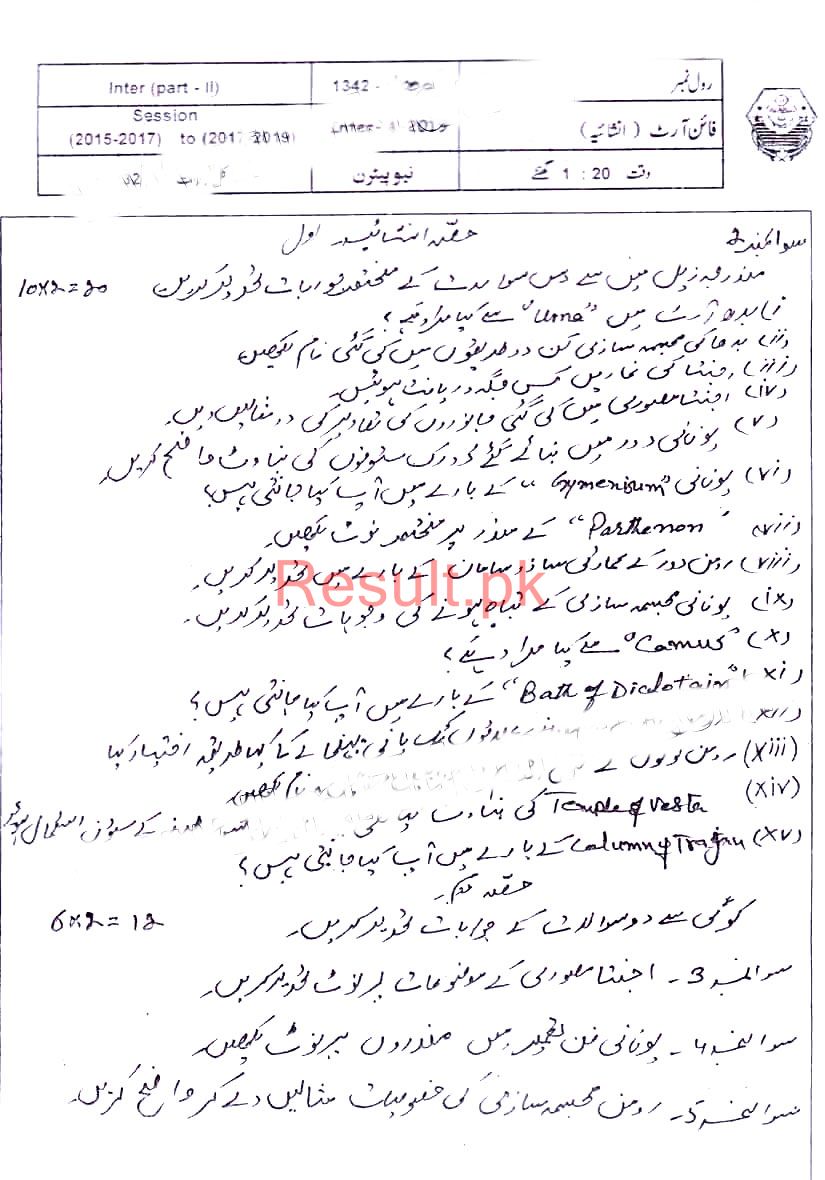 رول نمبر
1342 -
Inter (part - II)
فائن آرٹ (انشائیہ)
Session
(2015-2017) to (2017-2019)
وقت 1 : 20 گھنٹے
نیو پیٹرن
سوال نمبر 2
حصہ انشائیہ اول
مندرجہ ذیل میں سے دس سوالات کے مختصر جوابات تحریر کریں
10x2=20
آرٹ میں "Urna" سے کیا مراد ہے؟
(ii) بدھا کی مجسمہ سازی کن دو طریقوں میں کی گئی نام لکھیں
(iii) اجنتا کی غاریں کس جگہ دریافت ہوئیں۔
(iv) اجنتا مصوری میں کی گئی جانوروں کی تصاویر کی دو مثالیں دیں۔
(v) یونانی دور میں بنائے گئے ڈورک ستونوں کی بناوٹ واضح کریں۔
(vi) یونانی "Gymenisum" کے بارے میں آپ کیا جانتی ہیں؟
(vii) "Parthenon" کے مندر پر مختصر نوٹ لکھیں۔
(viii) رومن دور کے عمارتی سازوسامان کے بارے میں تحریر کریں۔
Result.pk
(ix) یونانی مجسمہ سازی کے تباہ ہونے کی وجوہات تحریر کریں۔
(x) "Camus" سے کیا مراد ہے؟
(xi) "Bath of Diclotain" کے بارے میں آپ کیا جانتی ہیں؟
(xii) تک پانی پہنچانے کا کیا طریقہ اختیار کیا
(xiii) رومن لوگوں نے نام لکھیں
(xiv) Temple of Vesta کی بناوٹ کے ستون استعمال ہوئے
(xv) Column of Trajan کے بارے میں آپ کیا جانتی ہیں؟
حصہ دوم۔
کوئی سے دو سوالات کے جوابات تحریر کریں۔
6x2=12
سوال نمبر 3۔ اجنتا مصوری کے موضوعات پر نوٹ تحریر کریں۔
سوال نمبر 4۔ یونانی فن تعمیر میں مندروں پر نوٹ لکھیں۔
سوال نمبر 5۔ رومن مجسمہ سازی کی خصوصیات مثالیں دے کر واضح کریں۔